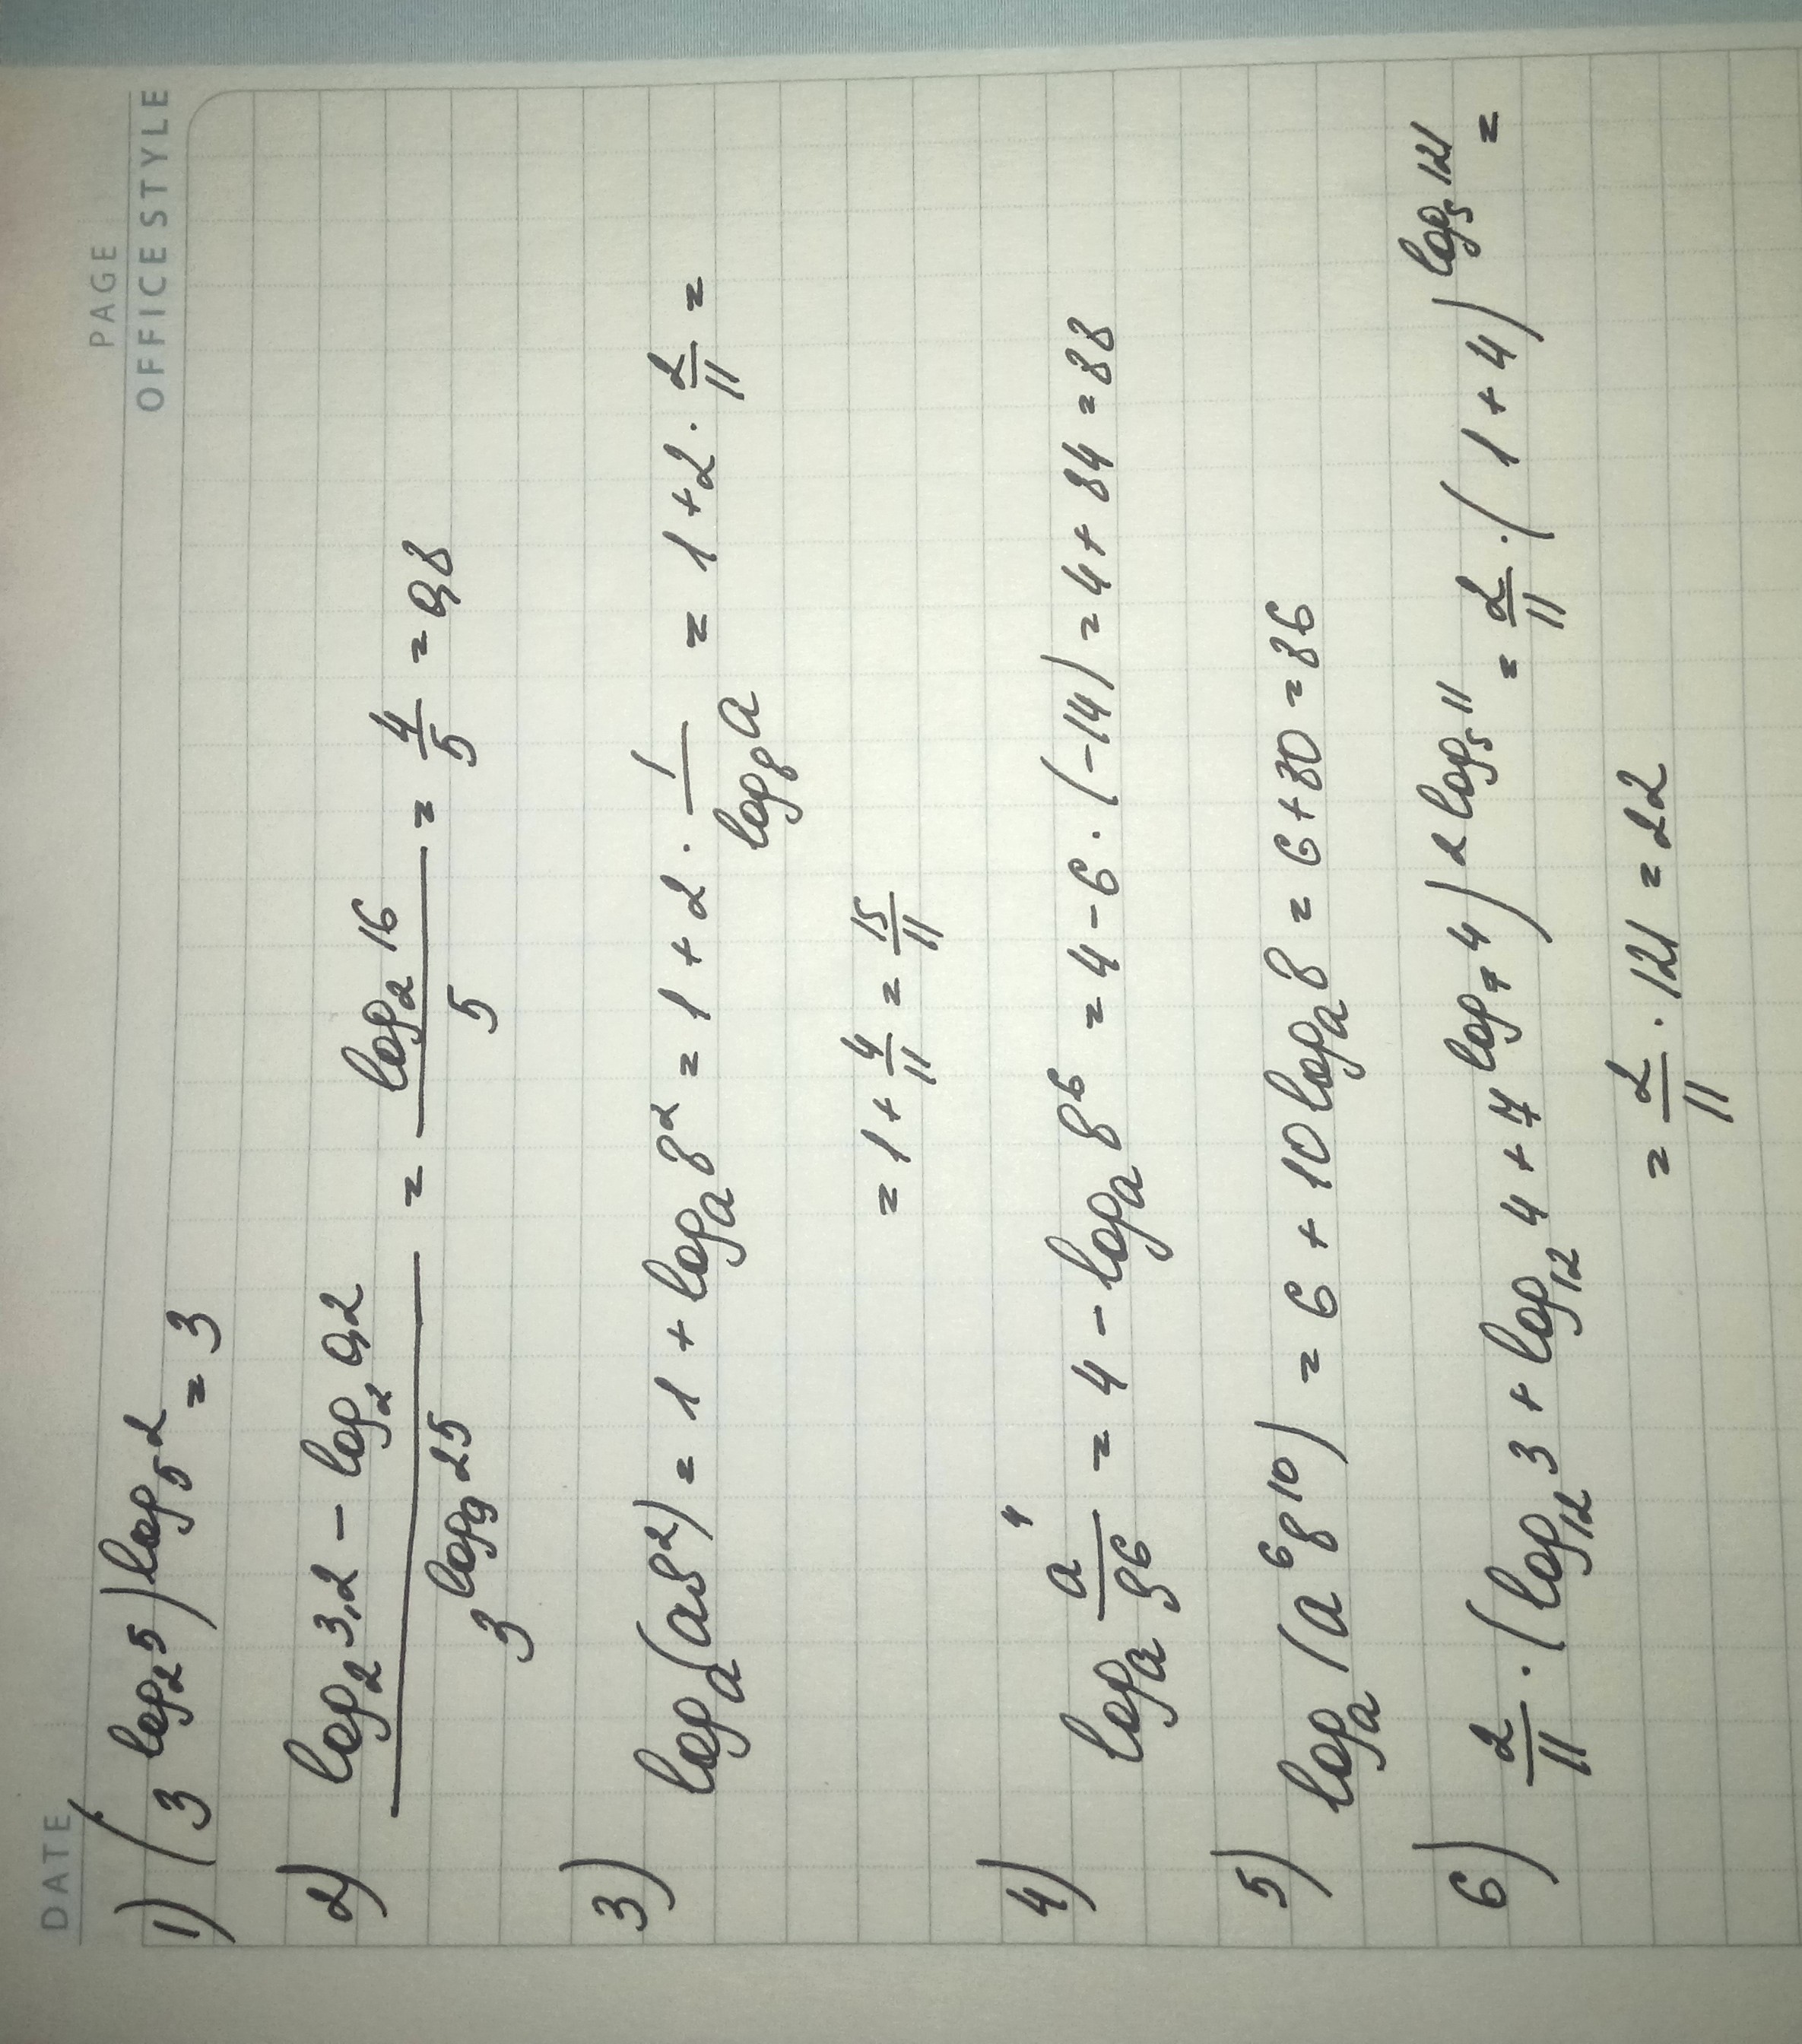 DATE
PAGE
OFFICE STYLE
1) (3^(log₂5))^(log₅2) = 3
2) (log₂3,2 − log₂0,2)/(3^(log₉25)) = (log₂16)/5 = 4/5 = 0,8
3) logₐ(ab²) = 1 + logₐb² = 1 + 2 · 1/(log_b a) = 1 + 2 · 2/11 =
= 1 + 4/11 = 15/11
4) logₐ a⁴/b⁶ = 4 − logₐb⁶ = 4 − 6 · (−14) = 4 + 84 = 88
5) logₐ(a⁶b¹⁰) = 6 + 10 logₐb = 6 + 30 = 36
6) 2/11 · (log₁₂3 + log₁₂4 + 7^(log₇4))^(2log₅11) = 2/11 · (1 + 4)^(log₅121) =
= 2/11 · 121 = 22